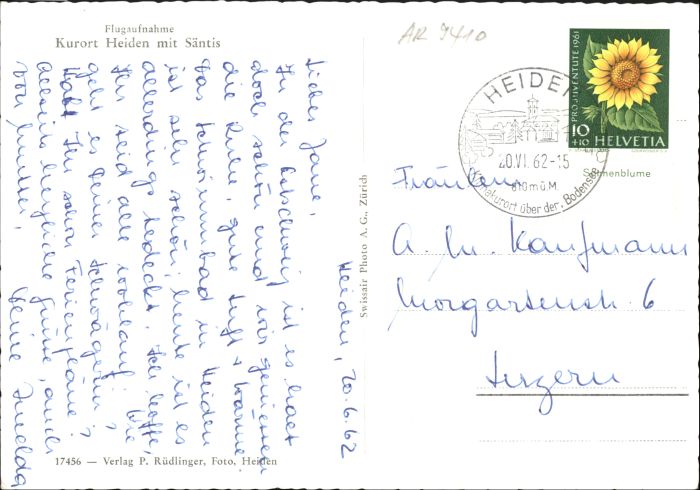 Flugaufnahme
Kurort Heiden mit Säntis
AR 9410
PRO JUVENTUTE 1961
10
+10 HELVETIA
Sonnenblume
HEIDEN
20.VI.62-15
810 m ü M.
Kurort über der. Bodensee
Heiden, 20.6.62
Liebes Jane,
In der Ostschweiz ist es halt
doch schön und wir geniessen
die Ruhe, gute Luft + Wärme
Das Schwimmbad in Heiden
ist sehr schön, heute ist es
allerdings bedeckt. Ich hoffe,
Ihr seid alle wohlauf. Wie
geht es Deiner Schwägerin?
Habt Ihr schon Ferienpläne?
Allseits herzliche Grüsse, auch
von Mutter,
Deine
Swissair Photo A. G., Zürich
Fräulein
A. M. Kaufmann
Morgartenstr. 6
Luzern
17456 — Verlag P. Rüdlinger, Foto, Heiden